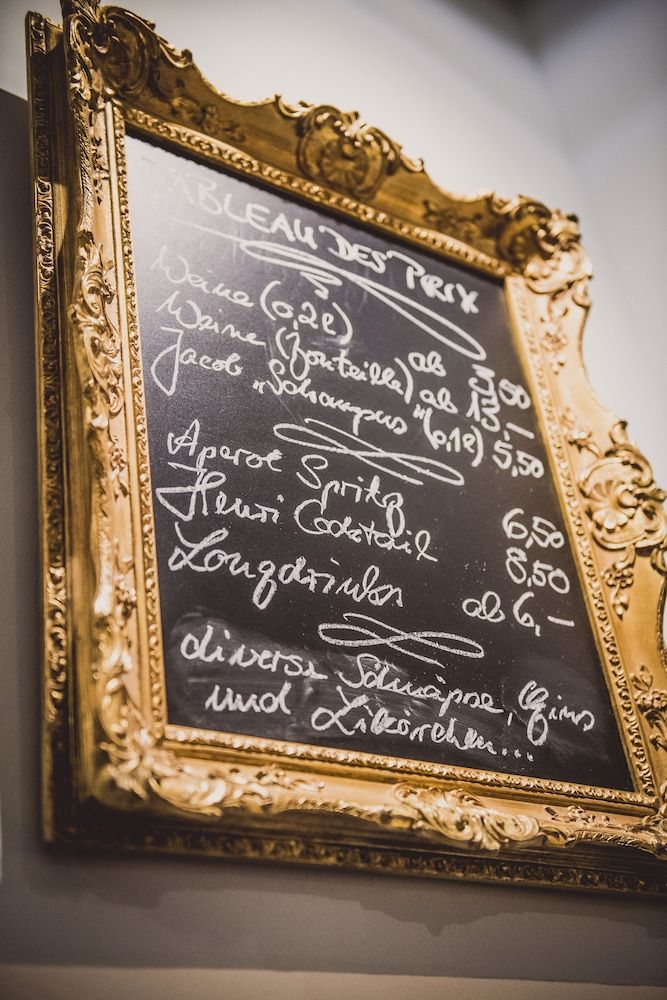 TABLEAU DES PRIX
Weine (0,2l) ab 3,50
Weine (Bouteille) ab 13,–
Jacob „Schampus“ (0,1l) 5,50
Aperol Spritz 6,50
Henri Cocktail 8,50
Longdrinks ab 6,–
diverse Schnäpse, Gins
und Likörchen...